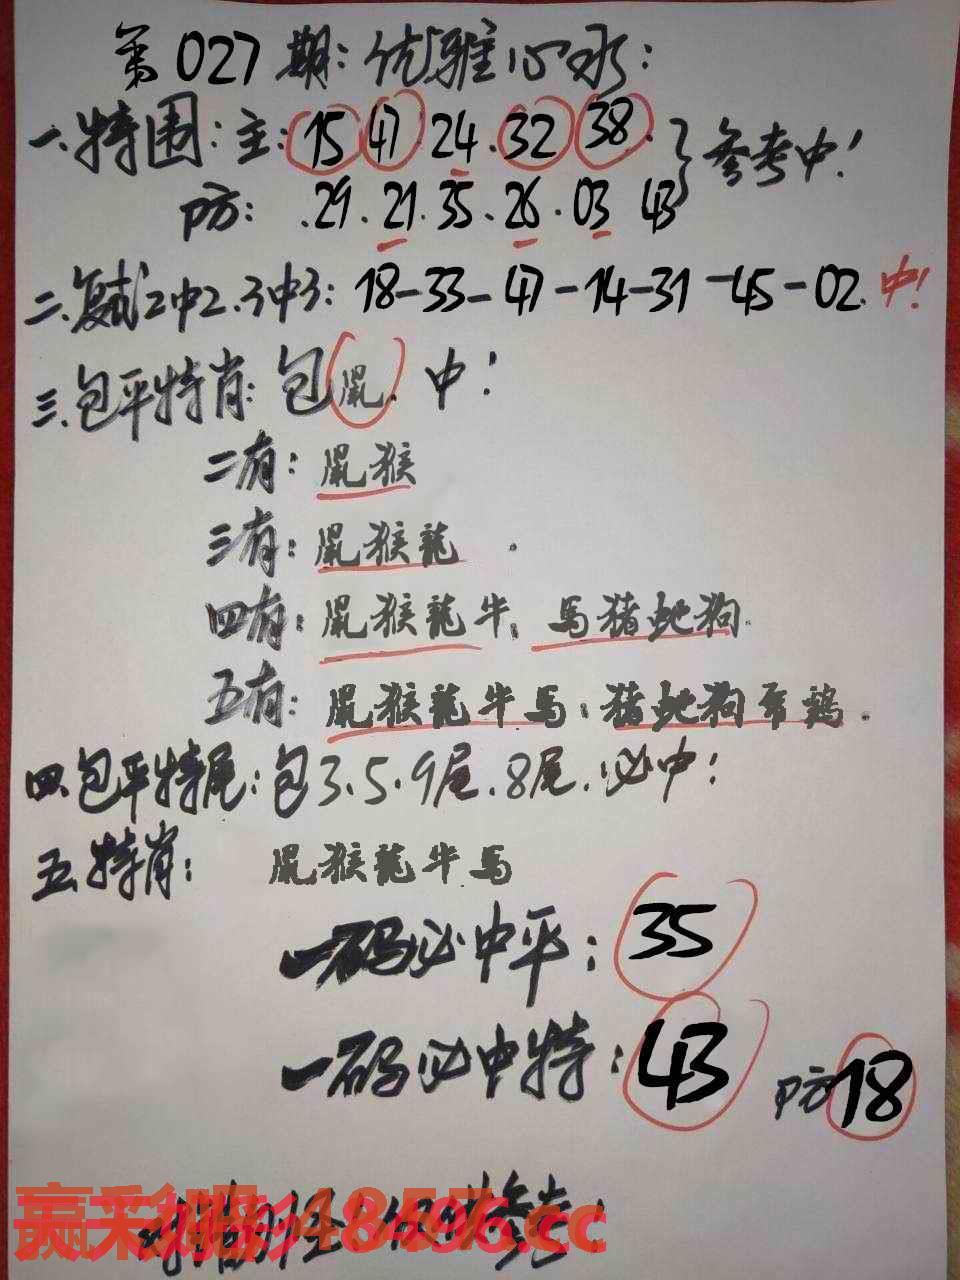 第027期：优雅心水：
一.特围：主：15 47 24 32 38. 参考中！
防：.29.21.35.26.03 43
二.复式2中2.3中3：18-33-47-14-31-45-02.中！
三.包平特肖：包鼠.中！
二有：鼠猴
三有：鼠猴龍.
四有：鼠猴龍牛；馬猪蛇狗.
五有：鼠猴龍牛馬；猪蛇狗兔鷄.
四.包平特尾：包3.5.9尾.8尾.必中！
五.特肖：鼠猴龍牛馬
一码必中平：35
一码必中特：43 防18
.cc